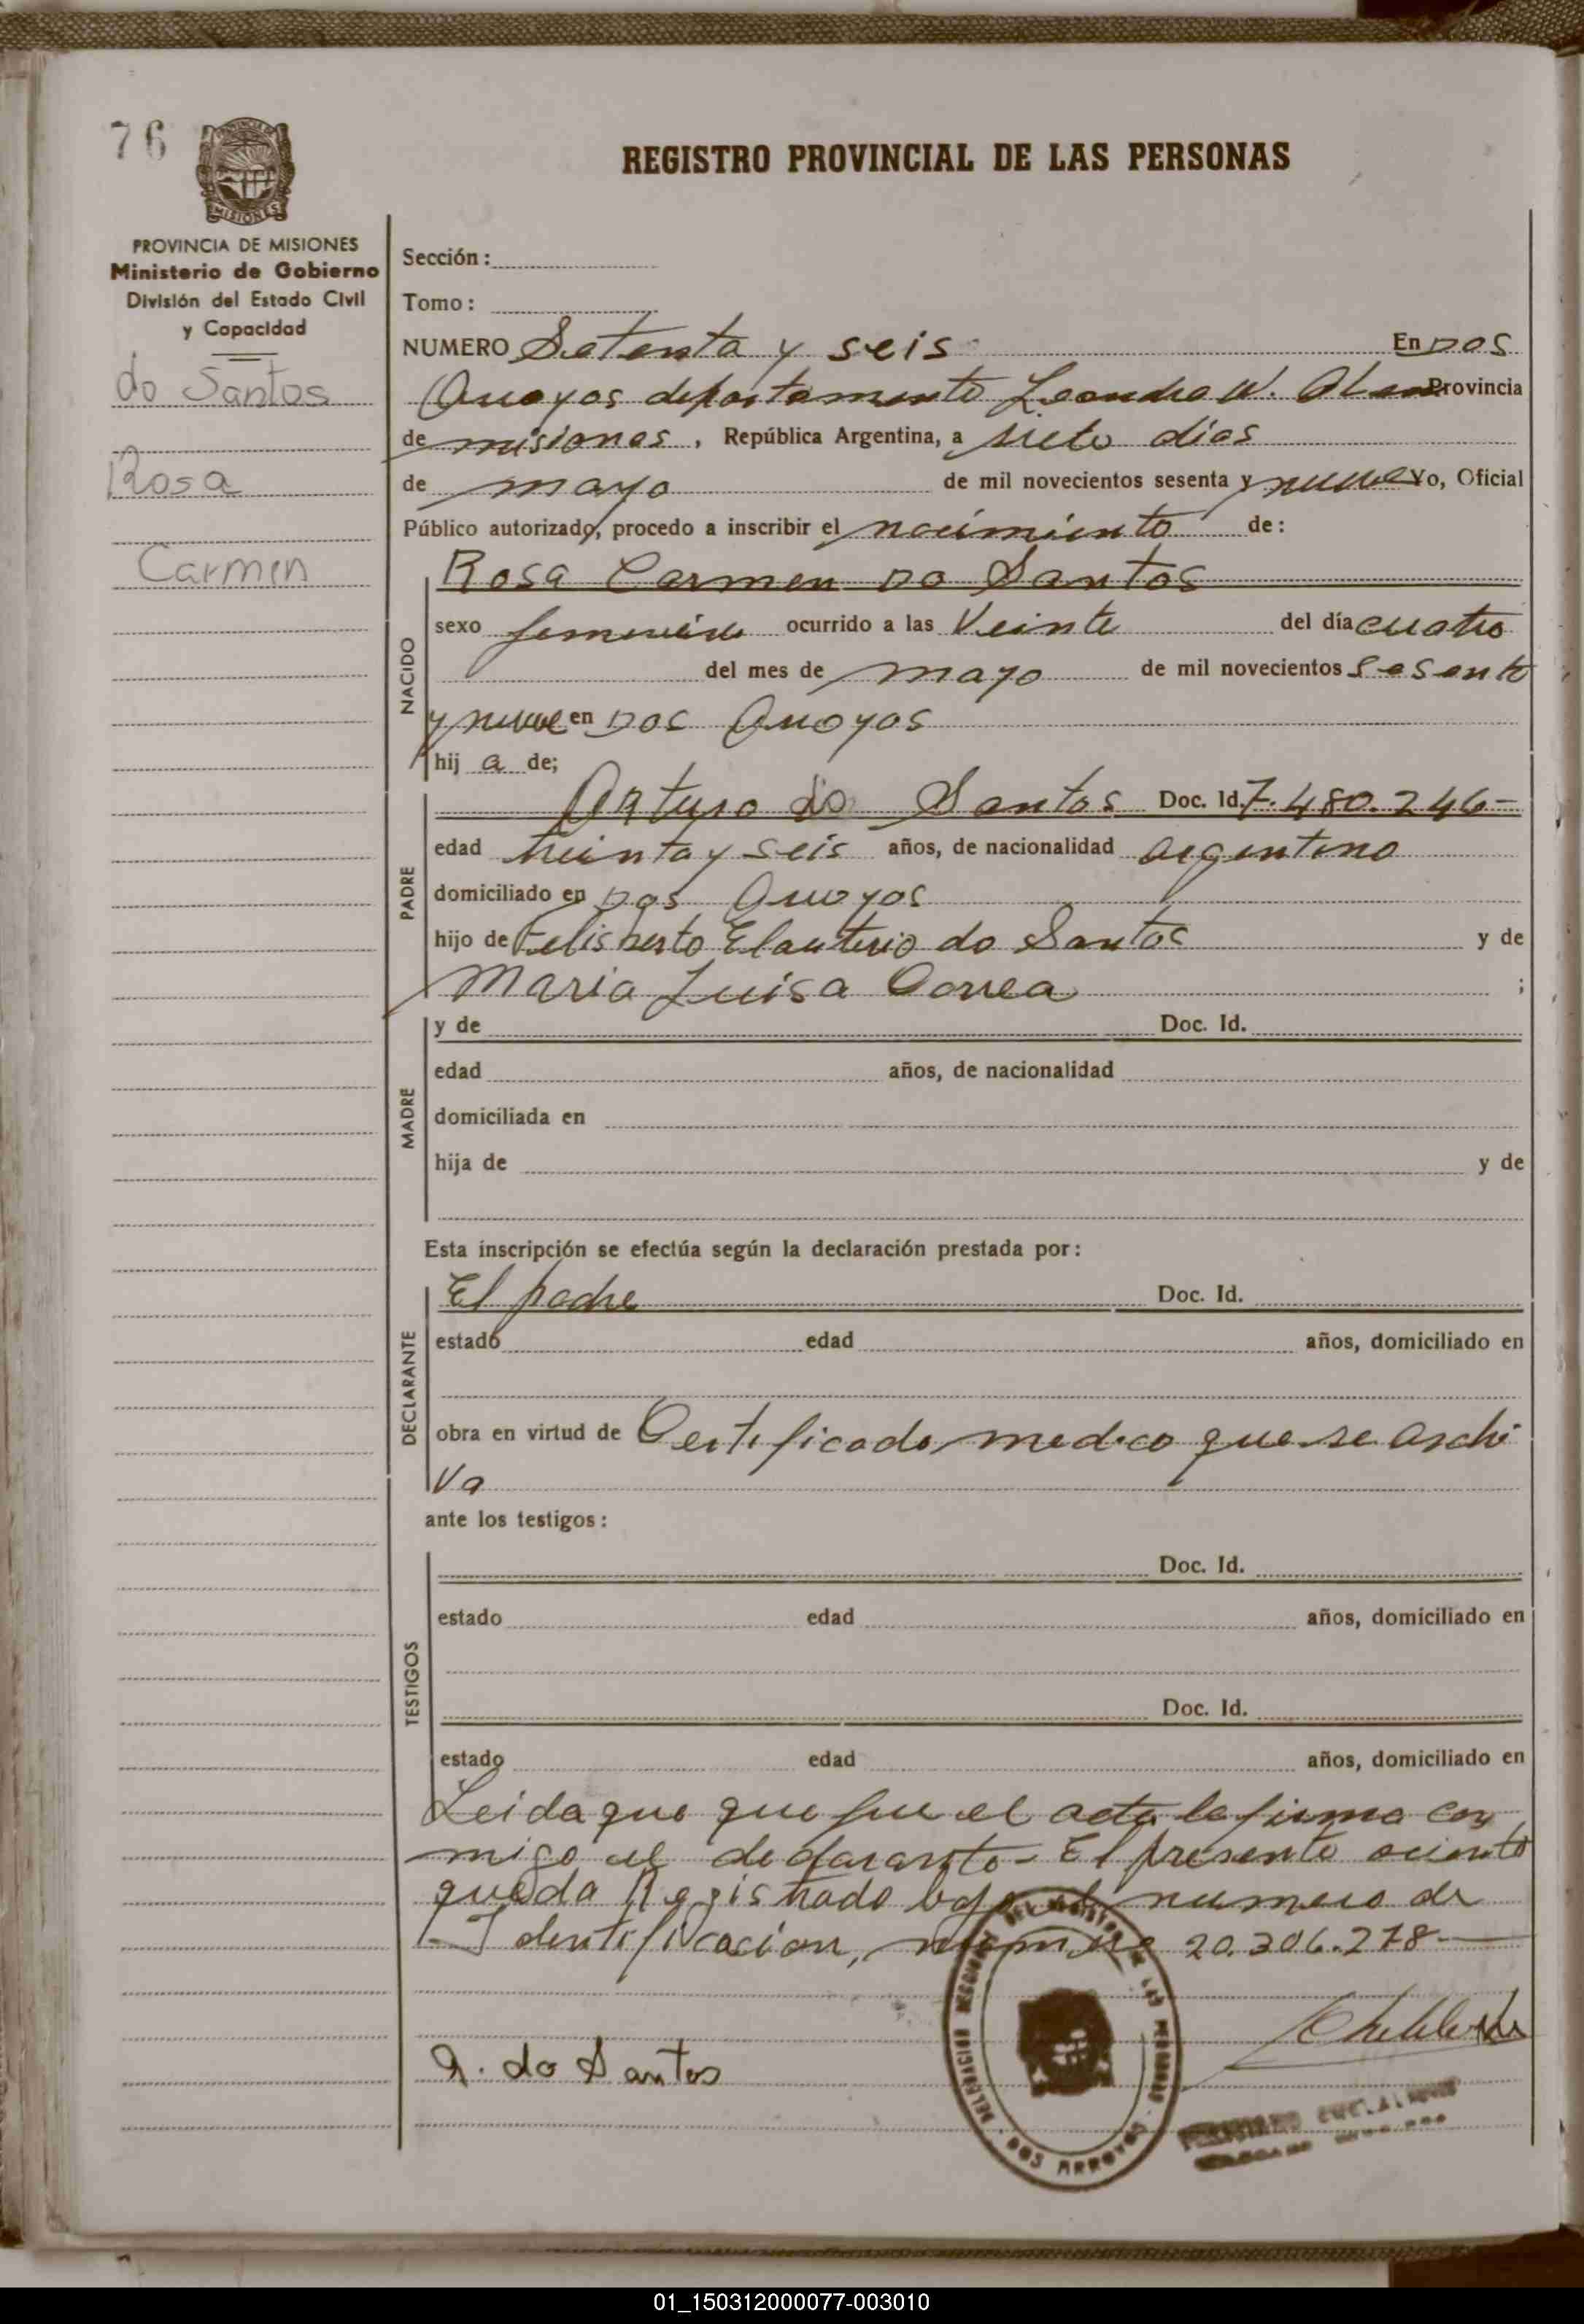 76
REGISTRO PROVINCIAL DE LAS PERSONAS
PROVINCIA DE MISIONES
Ministerio de Gobierno
División del Estado Civil
y Capacidad
do Santos
Rosa
Carmen
Sección:
Tomo:
NUMERO Setenta y seis En Dos
Arroyos departamento Leandro N. Alem Provincia
de misiones, República Argentina, a siete dias
de mayo de mil novecientos sesenta y nueve Yo, Oficial
Público autorizado, procedo a inscribir el nacimiento de:
NACIDO
Rosa Carmen Do Santos
sexo femenino ocurrido a las Veinte del día cuatro
del mes de mayo de mil novecientos sesenta
y nueve en Dos Arroyos
hij a de;
PADRE
Arturo do Santos Doc. Id. 7.480.246-
edad treinta y seis años, de nacionalidad argentino
domiciliado en Dos Arroyos
hijo de Felisberto Elauterio do Santos y de
Maria Luisa Correa ;
MADRE
y de Doc. Id.
edad años, de nacionalidad
domiciliada en
hija de y de
Esta inscripción se efectúa según la declaración prestada por:
DECLARANTE
El padre Doc. Id.
estado edad años, domiciliado en
obra en virtud de Certificado medico que se archi
va
ante los testigos:
TESTIGOS
Doc. Id.
estado edad años, domiciliado en
Doc. Id.
estado edad años, domiciliado en
Leida que que fue el acta la firma con
migo el declarante - El presente aciento
queda Registrado bajo el numero de
Identificacion, numero 20.306.278-
A. do Santos
DOS ARROYOS
01_150312000077-003010